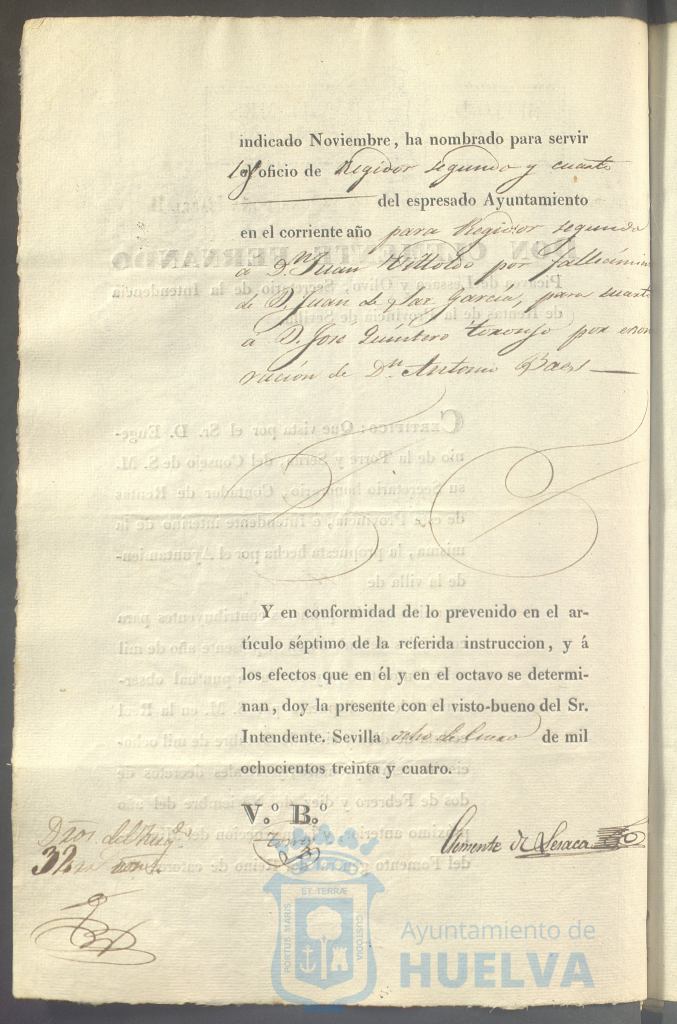 indicado Noviembre, ha nombrado para servir
los oficio de Regidor segundo y cuarto
del espresado Ayuntamiento
en el corriente año para Regidor segundo
a D.n Juan por fallecimien
de D. Juan de Paz Garcia, para cuarto
a D. Jose Quintero por exon
racion de D.n Antonio Baes
Y en conformidad de lo prevenido en el ar-
tículo séptimo de la referida instruccion, y á
los efectos que en él y en el octavo se determi-
nan, doy la presente con el visto-bueno del Sr.
Intendente. Sevilla ocho de Enero de mil
ochocientos treinta y cuatro.
V.º B.º
Torre
Clemente de
Dros. del
32
PORTUS MARIS ET TERRÆ CUSTODIA
Ayuntamiento de
HUELVA